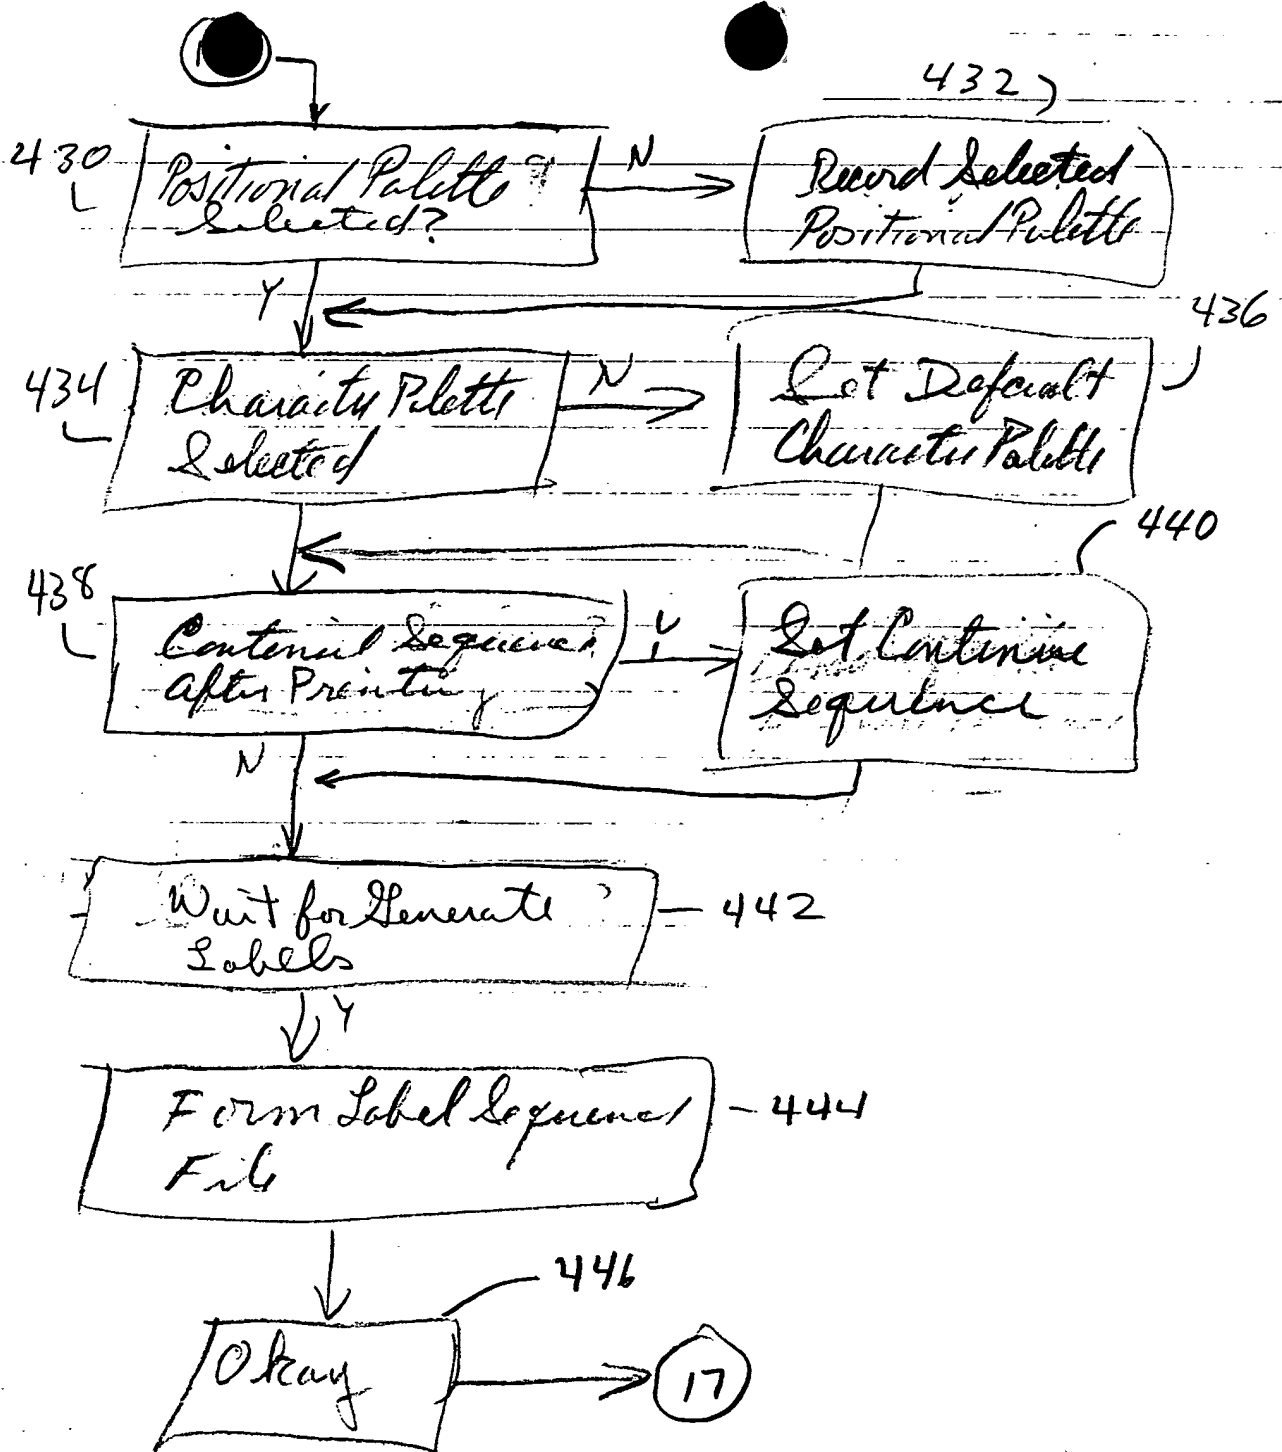 432
430
Positional Palette
Selected?
N
Record Selected
Positional Palette
Y
436
434
Character Palette
Selected
N
Set Default
Character Palette
440
438
Continue Sequence
After Printing
Set Continue
Sequence
N
Wait for Generate
Labels
442
Y
Form Label Sequence
File
444
446
Okay
17